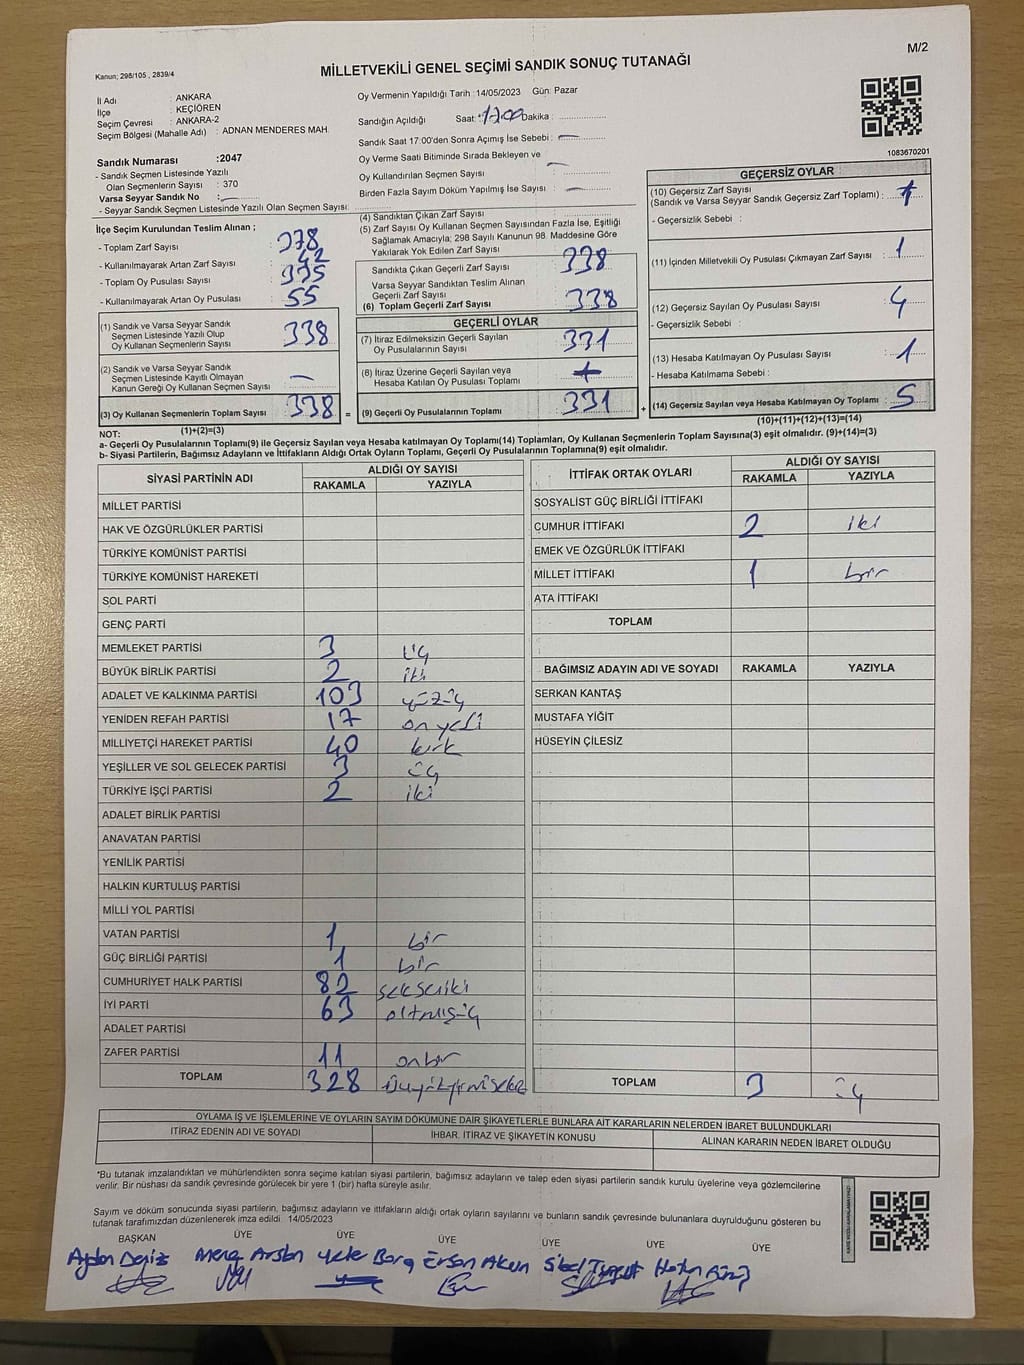 M/2
Kanun; 298/105 , 2839/4
MİLLETVEKİLİ GENEL SEÇİMİ SANDIK SONUÇ TUTANAĞI
İl Adı : ANKARA
İlçe : KEÇİÖREN
Seçim Çevresi : ANKARA-2
Seçim Bölgesi (Mahalle Adı) : ADNAN MENDERES MAH.
Sandık Numarası :2047
- Sandık Seçmen Listesinde Yazılı
Olan Seçmenlerin Sayısı : 370
Varsa Seyyar Sandık No :
- Seyyar Sandık Seçmen Listesinde Yazılı Olan Seçmen Sayısı:
Oy Vermenin Yapıldığı Tarih :14/05/2023 Gün: Pazar
Sandığın Açıldığı Saat: 17.00 Dakika :
Sandık Saat 17:00'den Sonra Açımış İse Sebebi :
Oy Verme Saati Bitiminde Sırada Bekleyen ve
Oy Kullandırılan Seçmen Sayısı :
Birden Fazla Sayım Döküm Yapılmış İse Sayısı :
1083670201
İlçe Seçim Kurulundan Teslim Alınan ;
- Toplam Zarf Sayısı : 378
- Kullanılmayarak Artan Zarf Sayısı : 42
- Toplam Oy Pusulası Sayısı : 395
- Kullanılmayarak Artan Oy Pusulası : 55
(1) Sandık ve Varsa Seyyar Sandık
Seçmen Listesinde Yazılı Olup
Oy Kullanan Seçmenlerin Sayısı : 338
(2) Sandık ve Varsa Seyyar Sandık
Seçmen Listesinde Kayıtlı Olmayan
Kanun Gereği Oy Kullanan Seçmen Sayısı : —
(3) Oy Kullanan Seçmenlerin Toplam Sayısı : 338 =
(1)+(2)=(3)
(4) Sandıktan Çıkan Zarf Sayısı :
(5) Zarf Sayısı Oy Kullanan Seçmen Sayısından Fazla İse, Eşitliği
Sağlamak Amacıyla; 298 Sayılı Kanunun 98. Maddesine Göre
Yakılarak Yok Edilen Zarf Sayısı :
Sandıkta Çıkan Geçerli Zarf Sayısı : 338
Varsa Seyyar Sandıktan Teslim Alınan
Geçerli Zarf Sayısı :
(6) Toplam Geçerli Zarf Sayısı : 338
GEÇERLİ OYLAR
(7) İtiraz Edilmeksizin Geçerli Sayılan
Oy Pusulalarının Sayısı : 331
(8) İtiraz Üzerine Geçerli Sayılan veya
Hesaba Katılan Oy Pusulası Toplamı :
(9) Geçerli Oy Pusulalarının Toplamı : 331 +
GEÇERSİZ OYLAR
(10) Geçersiz Zarf Sayısı
(Sandık ve Varsa Seyyar Sandık Geçersiz Zarf Toplamı) :
- Geçersizlik Sebebi :
(11) İçinden Milletvekili Oy Pusulası Çıkmayan Zarf Sayısı : 1
(12) Geçersiz Sayılan Oy Pusulası Sayısı : 4
- Geçersizlik Sebebi :
(13) Hesaba Katılmayan Oy Pusulası Sayısı : 1
- Hesaba Katılmama Sebebi :
(14) Geçersiz Sayılan veya Hesaba Katılmayan Oy Toplamı : 5
(10)+(11)+(12)+(13)=(14)
NOT:
a- Geçerli Oy Pusulalarının Toplamı(9) ile Geçersiz Sayılan veya Hesaba katılmayan Oy Toplamı(14) Toplamları, Oy Kullanan Seçmenlerin Toplam Sayısına(3) eşit olmalıdır. (9)+(14)=(3)
b- Siyasi Partilerin, Bağımsız Adayların ve İttifakların Aldığı Ortak Oyların Toplamı, Geçerli Oy Pusulalarının Toplamına(9) eşit olmalıdır.
SİYASİ PARTİNİN ADI ALDIĞI OY SAYISI
RAKAMLA YAZIYLA
MİLLET PARTİSİ
HAK VE ÖZGÜRLÜKLER PARTİSİ
TÜRKİYE KOMÜNİST PARTİSİ
TÜRKİYE KOMÜNİST HAREKETİ
SOL PARTİ
GENÇ PARTİ
MEMLEKET PARTİSİ 3 üç
BÜYÜK BİRLİK PARTİSİ 2 iki
ADALET VE KALKINMA PARTİSİ 103 yüzüç
YENİDEN REFAH PARTİSİ 17 onyedi
MİLLİYETÇİ HAREKET PARTİSİ 40 kırk
YEŞİLLER VE SOL GELECEK PARTİSİ 3 üç
TÜRKİYE İŞÇİ PARTİSİ 2 iki
ADALET BİRLİK PARTİSİ
ANAVATAN PARTİSİ
YENİLİK PARTİSİ
HALKIN KURTULUŞ PARTİSİ
MİLLİ YOL PARTİSİ
VATAN PARTİSİ 1 bir
GÜÇ BİRLİĞİ PARTİSİ 1 bir
CUMHURİYET HALK PARTİSİ 82 sekseniki
İYİ PARTİ 63 altmışüç
ADALET PARTİSİ
ZAFER PARTİSİ 11 onbir
TOPLAM 328 üçyüzyirmisekiz
İTTİFAK ORTAK OYLARI ALDIĞI OY SAYISI
RAKAMLA YAZIYLA
SOSYALİST GÜÇ BİRLİĞİ İTTİFAKI
CUMHUR İTTİFAKI 2 iki
EMEK VE ÖZGÜRLÜK İTTİFAKI
MİLLET İTTİFAKI 1 bir
ATA İTTİFAKI
TOPLAM
BAĞIMSIZ ADAYIN ADI VE SOYADI RAKAMLA YAZIYLA
SERKAN KANTAŞ
MUSTAFA YİĞİT
HÜSEYİN ÇİLESİZ
TOPLAM 3 üç
OYLAMA İŞ VE İŞLEMLERİNE VE OYLARIN SAYIM DÖKÜMÜNE DAİR ŞİKAYETLERLE BUNLARA AİT KARARLARIN NELERDEN İBARET BULUNDUKLARI
İTİRAZ EDENİN ADI VE SOYADI İHBAR, İTİRAZ VE ŞİKAYETİN KONUSU ALINAN KARARIN NEDEN İBARET OLDUĞU
*Bu tutanak imzalandıktan ve mühürlendikten sonra seçime katılan siyasi partilerin, bağımsız adayların ve talep eden siyasi partilerin sandık kurulu üyelerine veya gözlemcilerine
verilir. Bir nüshası da sandık çevresinde görülecek bir yere 1 (bir) hafta süreyle asılır.
Sayım ve döküm sonucunda siyasi partilerin, bağımsız adayların ve ittifakların aldığı ortak oyların sayılarını ve bunların sandık çevresinde bulunanlara duyrulduğunu gösteren bu
tutanak tarafımızdan düzenlenerek imza edildi 14/05/2023
BAŞKAN ÜYE ÜYE ÜYE ÜYE ÜYE ÜYE
Aydan Deniz Meng Arslan Bora Ersan Akun Sibel Turgut